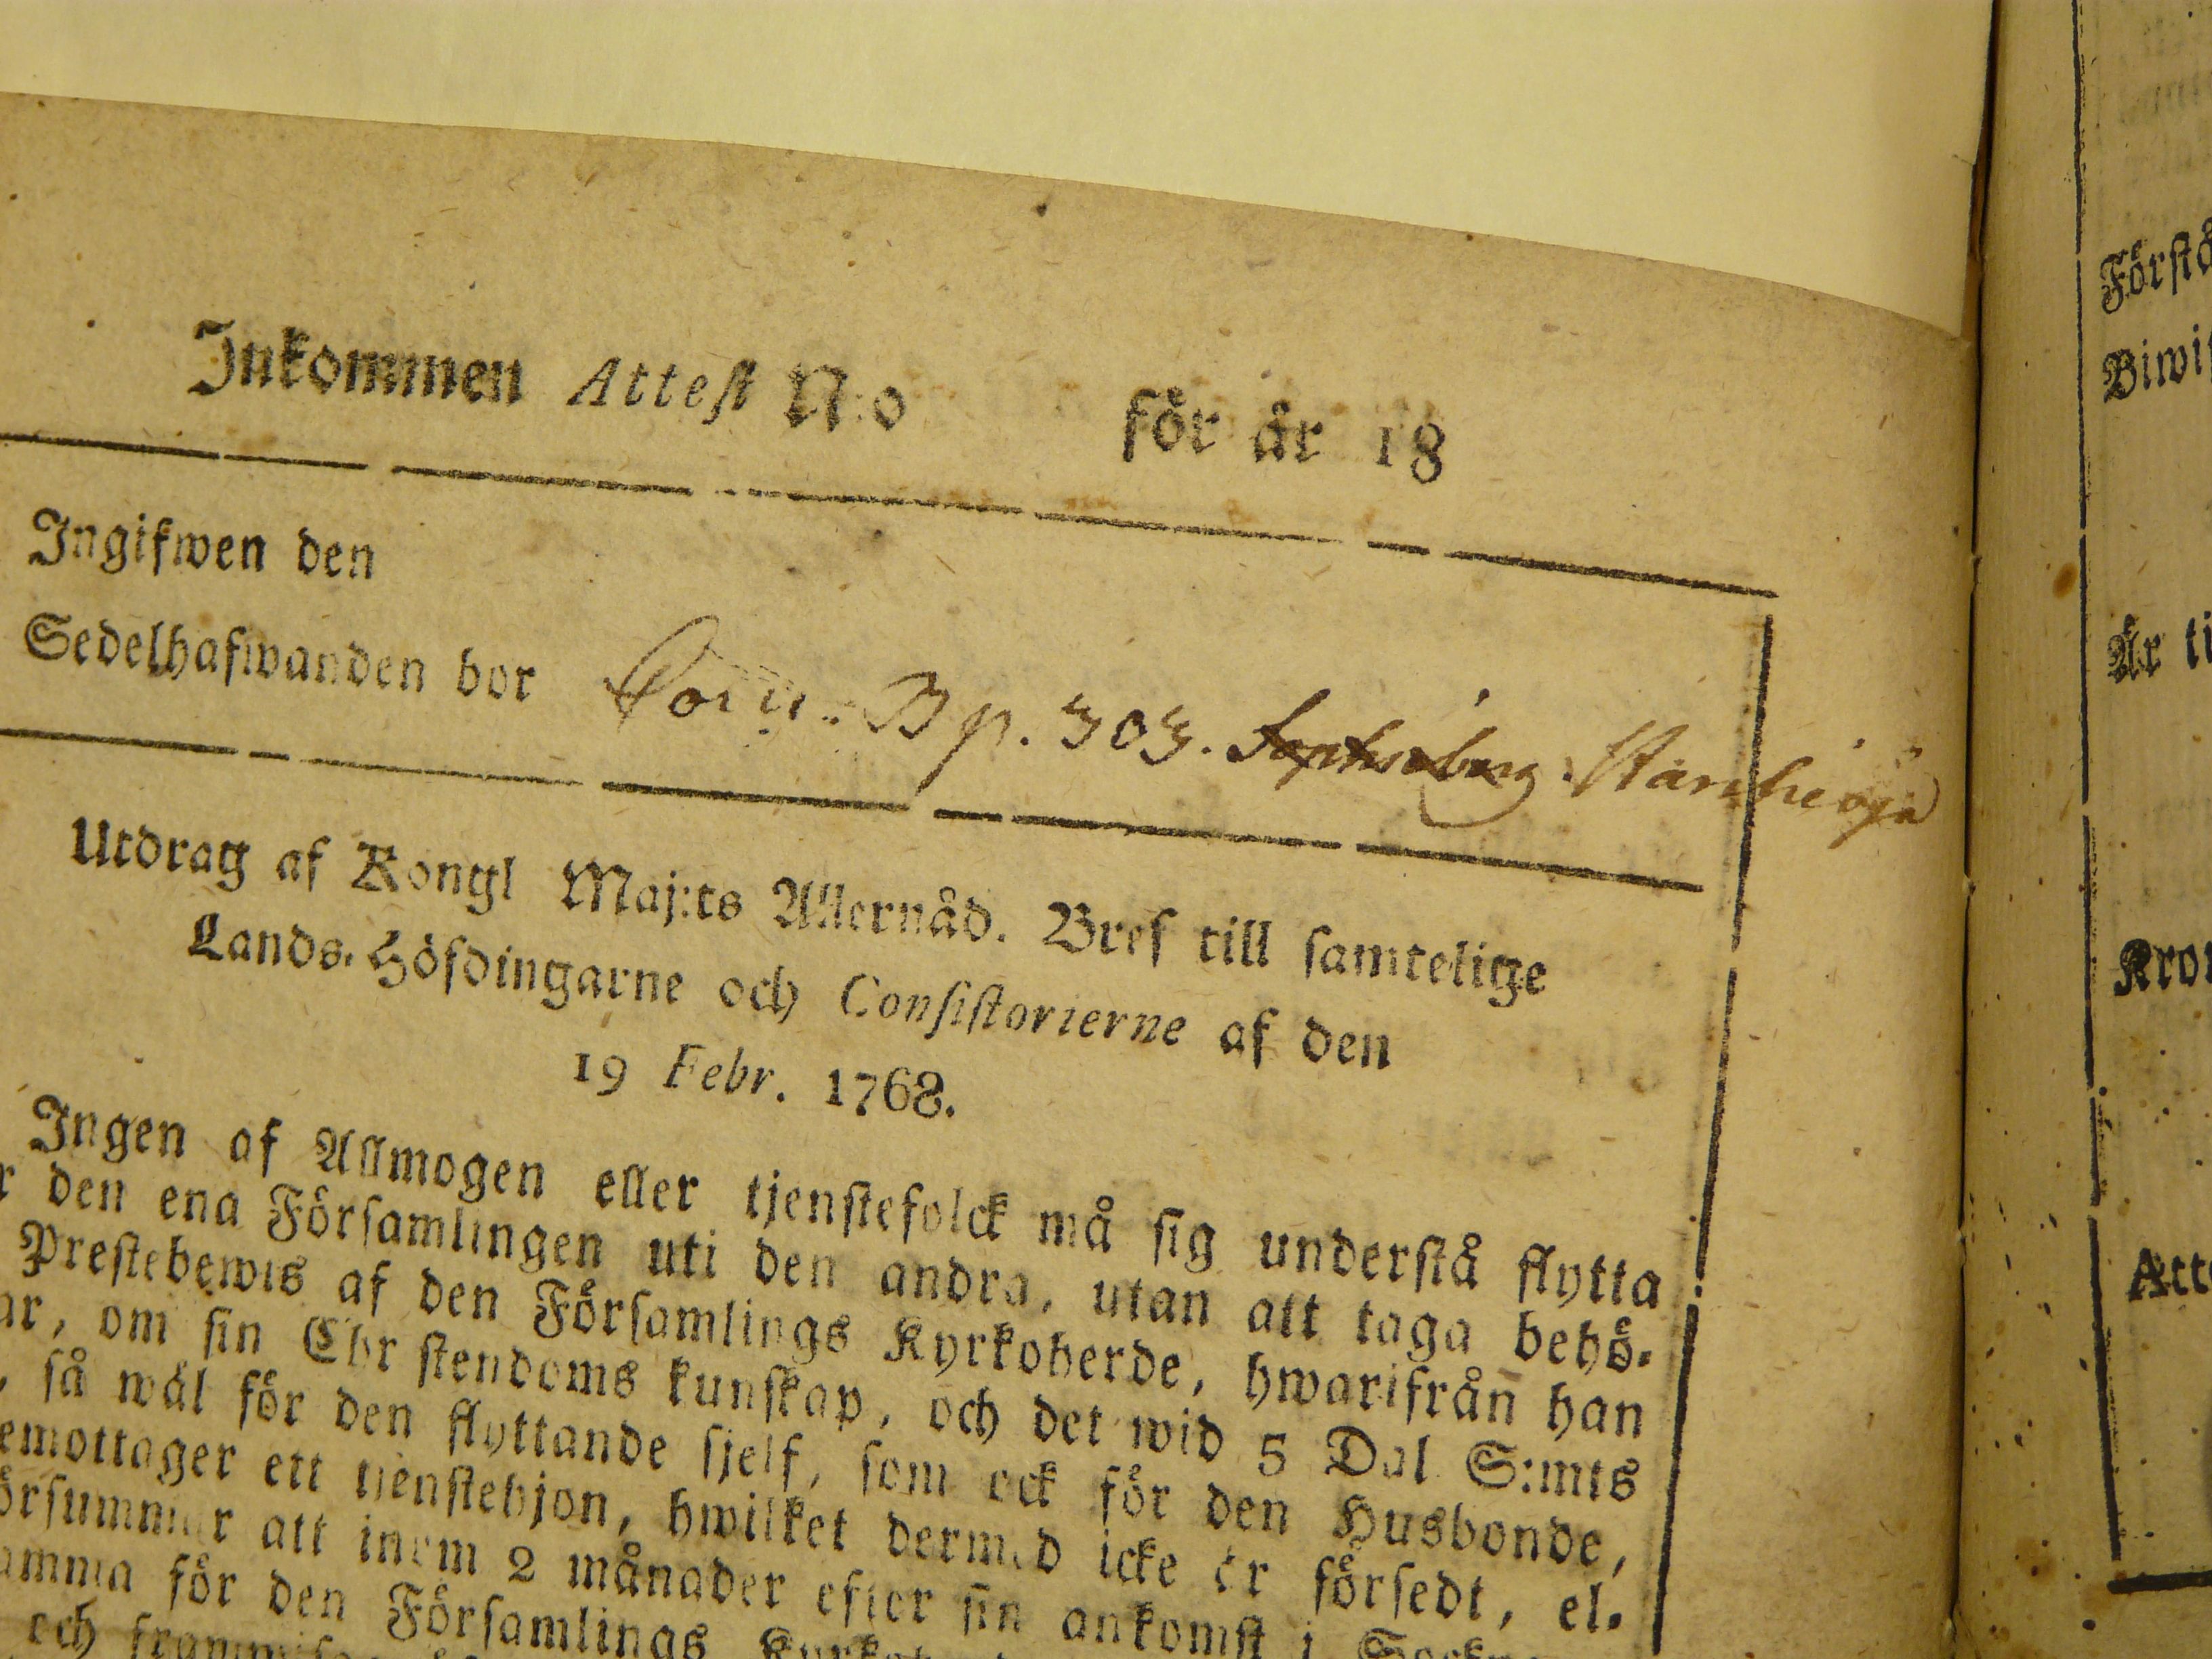 Inkommen Attest N:o för år 18
Ingifwen den
Sedelhafwanden bor B p. 303.
Utdrag af Kongl Maj:ts Allernåd. Bref till samtelige
Lands-Höfdingarne och Consistorierne af den
19 Febr. 1768.
Ingen af Allmogen eller tjenstefolck må sig understå flytta
r den ena Församlingen uti den andra, utan att taga behö-
Prestebewis af den Församlings Kyrkoherde, hwarifrån han
ar, om sin Christendoms kunskap, och det wid 5 Dal. S:mts
, så wäl för den flyttande sjelf, som ock för den Husbonde,
emottager ett tjenstehjon, hwilket dermed icke är försedt, el-
örsummar att inom 2 månader efter sin ankomst i
amma för den Församlings
och
Förstå
Biwis
Är ti
Kron
Att